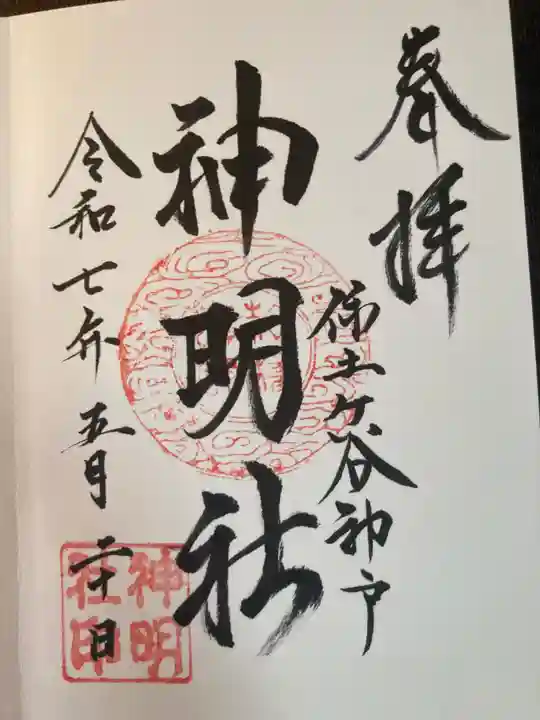 奉拝
保土ケ谷神戸
神明社
令和七年五月二十日
神明
社印